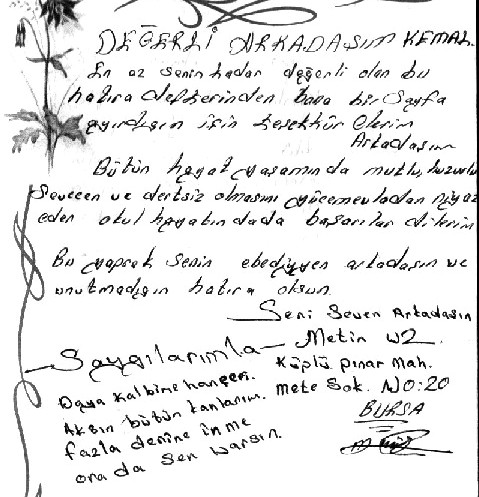 DEĞERLİ ARKADAŞIM KEMAL.
En az senin kadar değerli olan bu
hatıra defterinden bana bir sayfa
ayırdığın için teşekkür ederim
Arkadaşım
Bütün hayat yaşamında mutlu, huzurlu
Sevecen ve dertsiz olmasını yücemevladan niyaz
eden okul hayatındada başarılar dilerim
Bu yaprak senin ebediyyen arkadaşın ve
unutmadığın hatıra olsun.
Seni Seven Arkadaşın
Saygılarımla Metin
Küplü pınar Mah.
Mete Sok. NO:20
BURSA
Daya kalbime hançeri.
Aksın bütün kanlarım.
fazla derine inme
orada sen varsın.